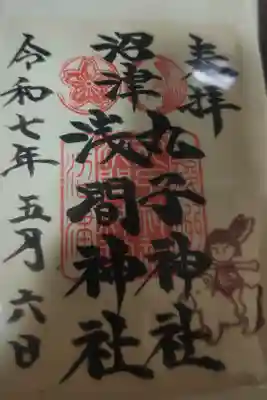 奉拝
沼津
丸子神社
浅間神社
令和七年五月六日